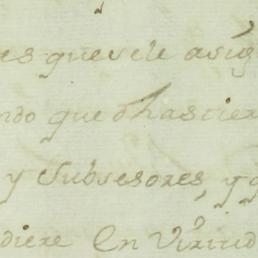 es que se le asig
ndo que dhas tier
y Subsesores, y q
diere en Virtud